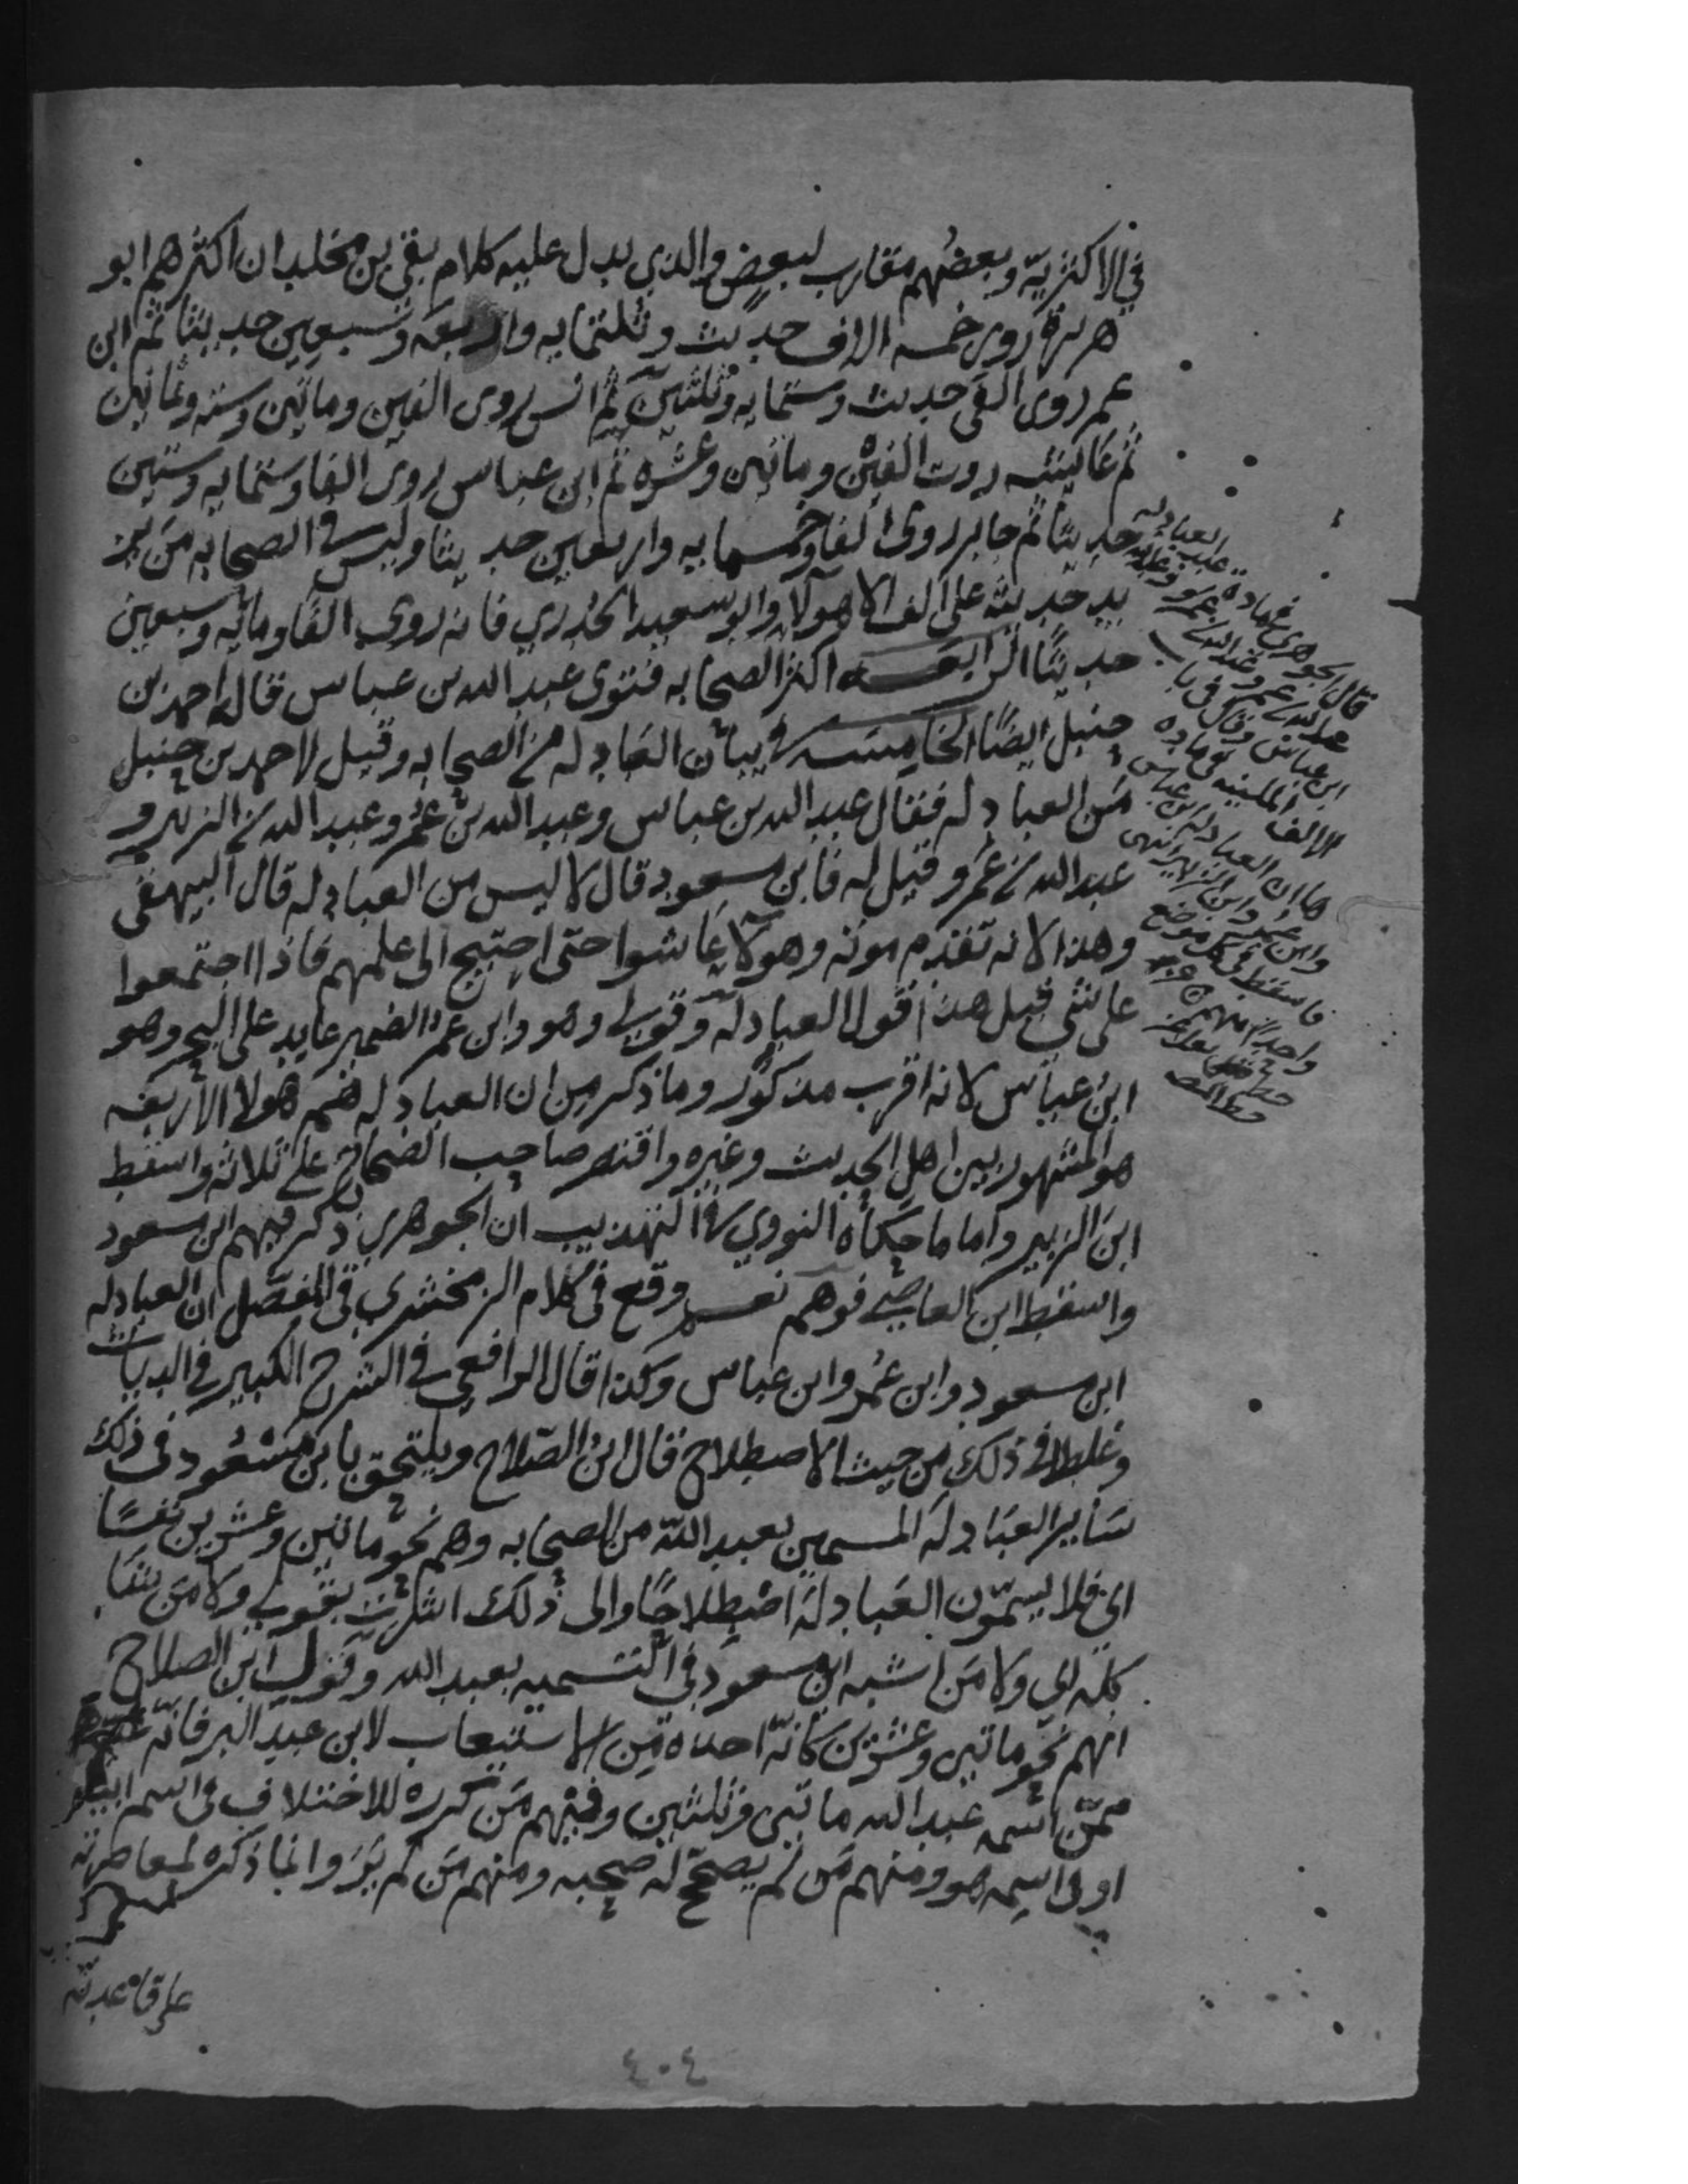 في الاكثرية وبعضهم مقارب لبعض والذي يدل عليه كلام بقي بن مخلد ان اكثرهم ابو
هريرة روى خمسه الاف حديث وثلثمايه واربعه وسبعين حديثا ثم ابن
عمر روى الفى حديث وستمايه وثلثين ثم انس روى الفين وماتين وسته وثمانين
ثم عايشه روت الفين وماتين وعشره ثم ابن عباس روى الفا وستمايه وستين
حديثا ثم جابر روى الفا وخمسمايه واربعين حديثا وليس في الصحابه من يز
يد حديثه على الف الا هولا وابو سعيد الخدري فانه روى الفا ومائه وسبعين
حديثا الرابعه اكثر الصحابه فتوى عبد الله بن عباس قاله احمد بن
حنبل ايضا الخامسه في بيان العبادله من الصحابه وقيل لاحمد بن حنبل
من العبادله فقال عبد الله بن عباس وعبد الله بن عمر وعبد الله بن الزبير و
عبد الله بن عمرو قيل له فابن مسعود قال لا ليس من العبادله قال البيهقى
وهذا لانه تقدم موته وهولا عاشوا حتى احتيج الى علمهم فاذا اجتمعوا
على شي قيل هذا قول العبادلة وقولي وهو وابن عمر الضمير عايد على البحر وهو
ابن عباس لانه اقرب مذكور وما ذكر من ان العبادله هم هولا الاربعه
هو المشهور بين اهل الحديث وغيره واقتصر صاحب الصحاح على ثلاثه واسقط
ابن الزبير واما ما حكاه النووي في التهذيب ان الجوهري ذكر فيهم ابن مسعود
واسقط ابن العاصي فوهم نعم وقع في كلام الزمخشري في المفصل ان العبادله
ابن مسعود وابن عمر وابن عباس وكذا قال الرافعي في الشرح الكبير في الديات
وغلطا في ذلك من حيث الاصطلاح قال ابن الصلاح ويلتحق بابن مسعود في ذلك
ساير العبادلة المسمين بعبد الله من الصحابه وهم نحو ماتين وعشرين نفسا
اى فلا يسمون العبادلة اصطلاحا والى ذلك اشرت بقولي ولا من شا
كله اي ولا من اشبه ابن مسعود في التسميه بعبد الله وقول ابن الصلاح
انهم نحو ماتين وعشرين كانه اخذه من الاستيعاب لابن عبد البر فانه عد
ممن اسمه عبد الله ماتين وثلثين وفيهم من كرره للاختلاف في اسم ابيه
او في اسمه هو ومنهم من لم يصحح له صحبه ومنهم من لم ير وانما ذكره لمعاصرته
على قاعدته
قال الجوهري
وقال في باب
الالف اللينه في ماده
ها ان العبادله ابن عباس
وابن عمر وابن الزبير انتهى
فاسقط في كل موضع
واحدا منهم
٤٠٤